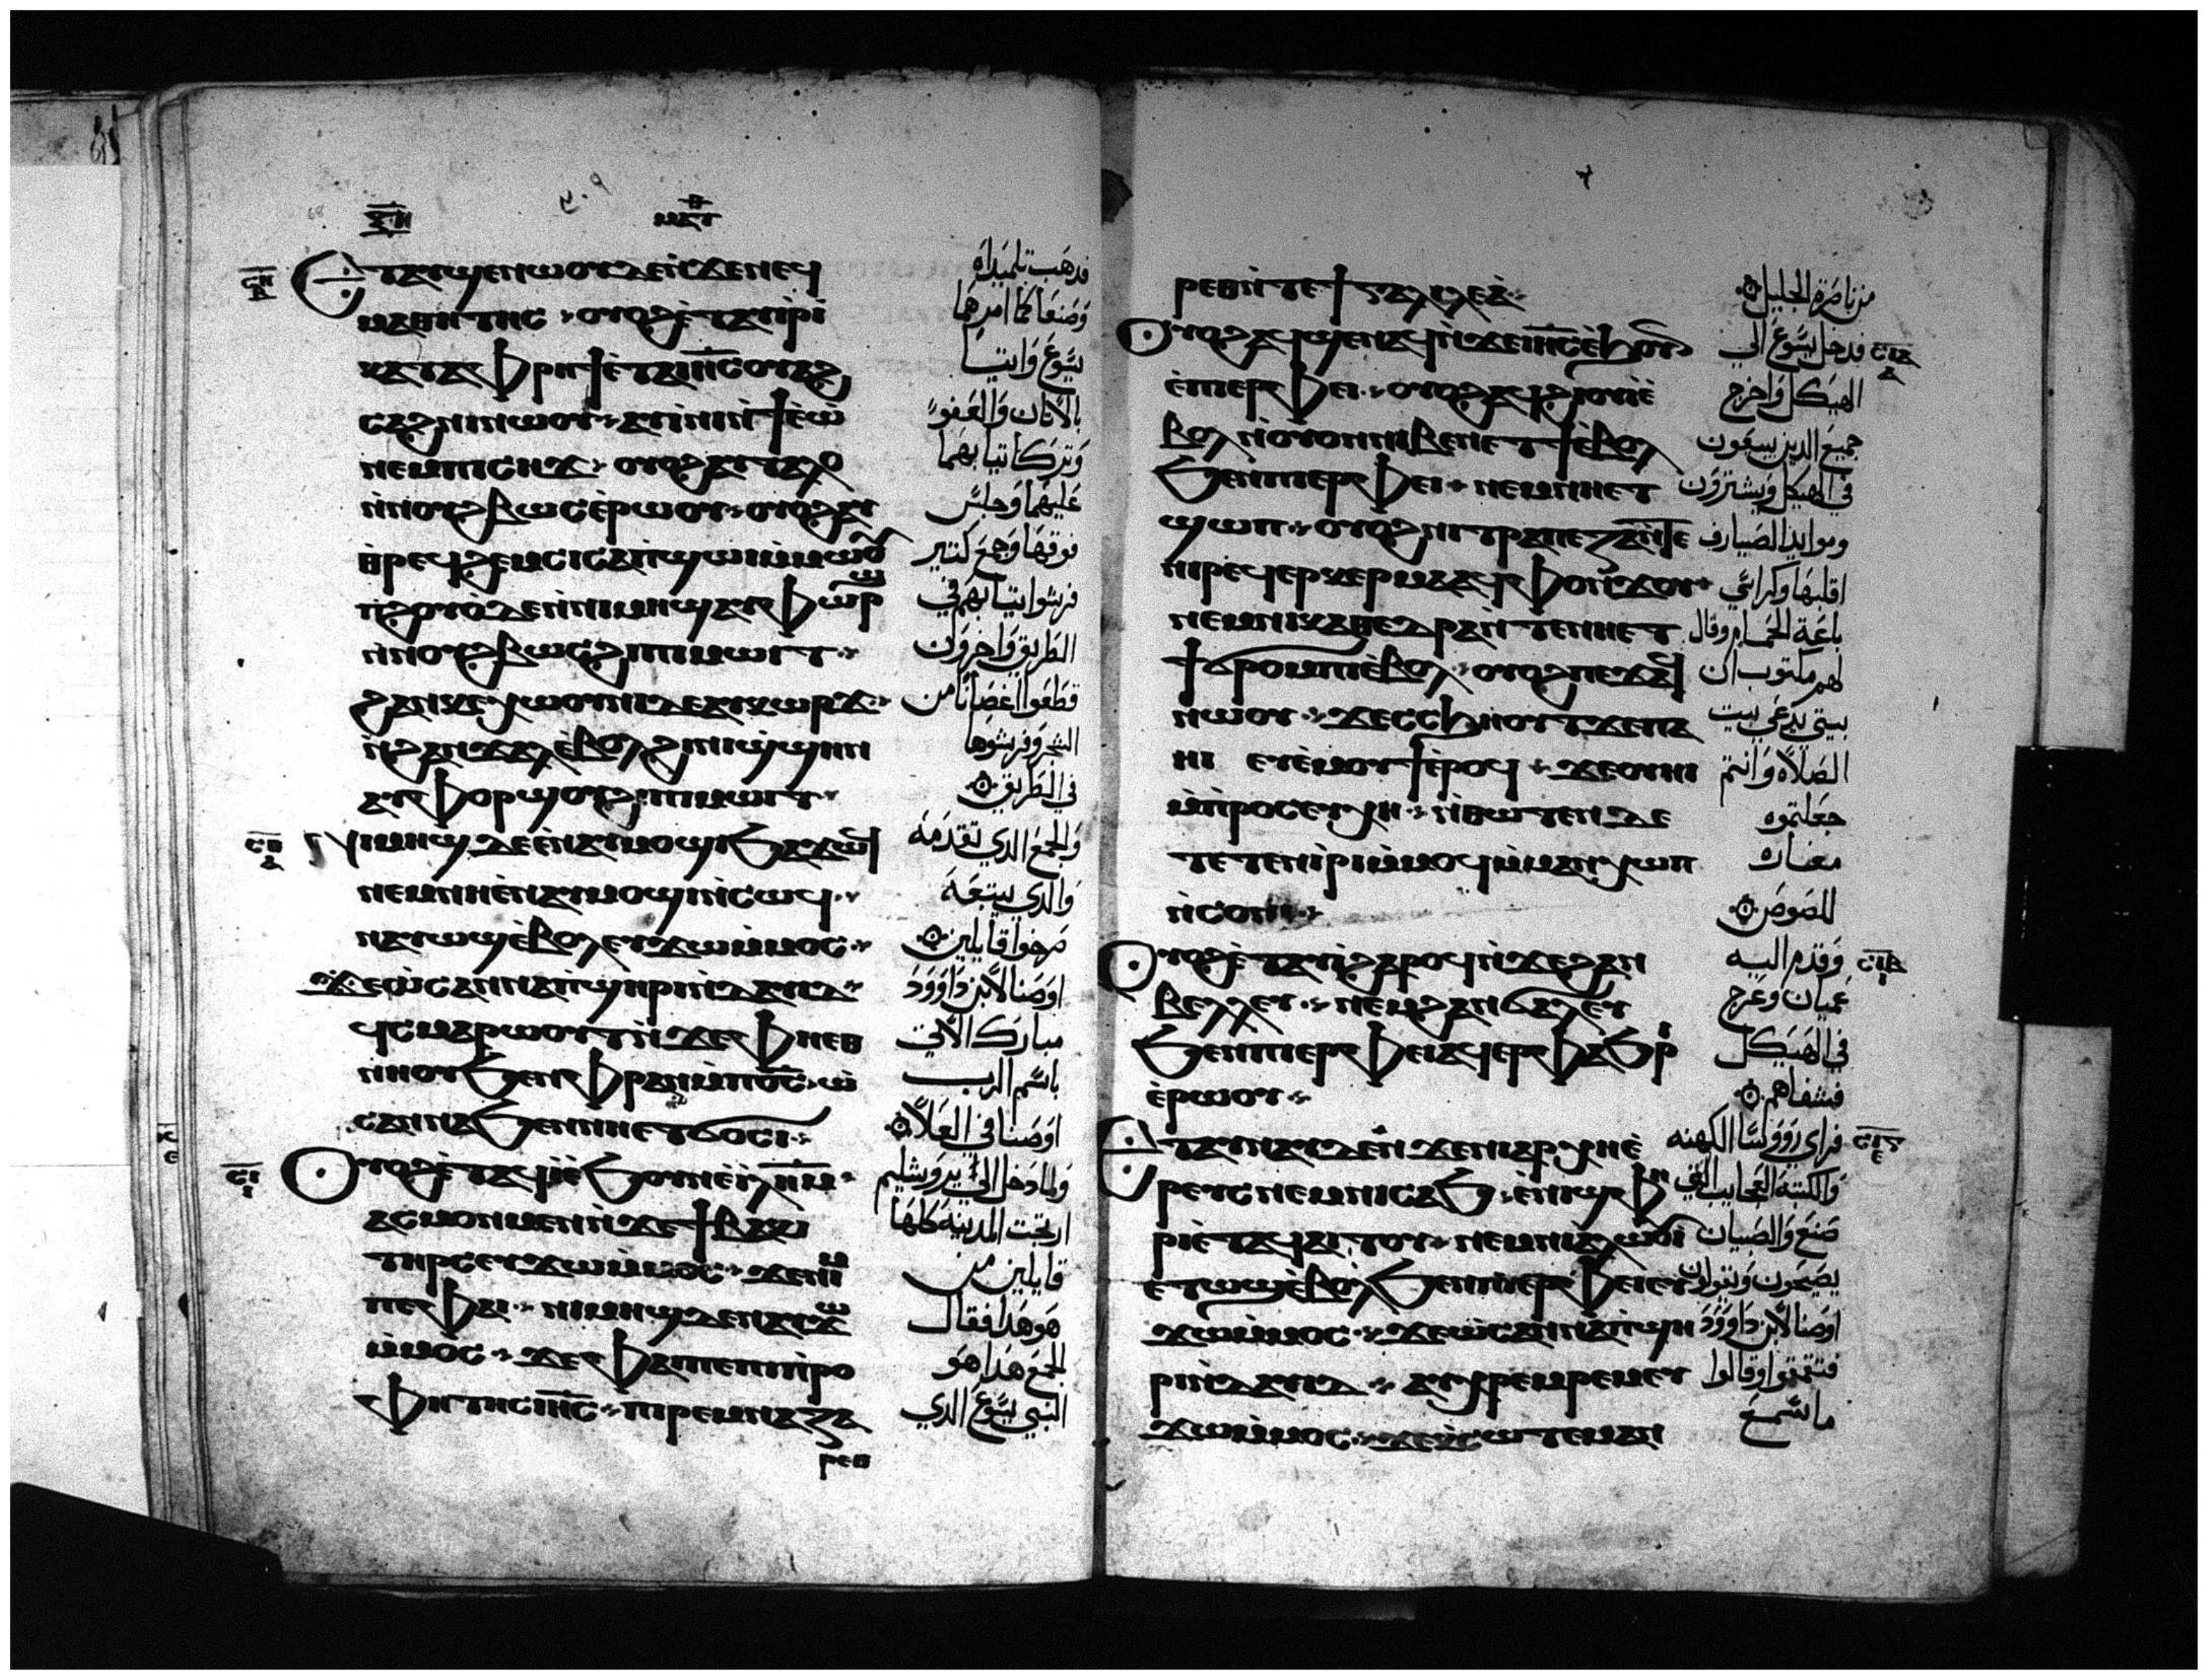 ⲝⲏ
ⲙⲁⲧ
ⲉⲧⲁⲩϣⲉⲛⲱⲟⲩ ⲇⲉ ⲛ̀ϫⲉⲛⲉϥ
ⲙⲁⲑⲏⲧⲏⲥ ⲟⲩⲟϩ ⲉ̀ⲧⲁⲩⲓ̀ⲣⲓ
ⲕⲁⲧⲁ ⲫⲣⲏϯ ⲉ̀ⲧⲁ ⲓⲏ̅ⲥ̅ ⲟⲩⲁϩ
ⲥⲁϩⲛⲓ ⲛⲱⲟⲩ ⲁⲩⲓ̀ⲛⲓ ⲛ̀ϯⲉ̀ⲱ̀
ⲛⲉⲙ ⲡⲓⲥⲏϫ ⲟⲩⲟϩ ⲁⲩⲧⲁⲗⲟ
ⲛ̀ⲛⲟⲩϩⲃⲱⲥ ⲉ̀ⲣⲱⲟⲩ ⲟⲩⲟϩ ⲁⲩ
ⲑⲣⲉϥϩⲉⲙⲥⲓ ⲥⲁⲡ̀ϣⲱⲓ ⲙ̀ⲙⲱⲟⲩ
ⲡ̀ϩⲟⲩⲟ̀ ⲇⲉ ⲛ̀ⲛⲓⲙⲏϣ ⲁⲩⲫⲱⲣϣ
ⲛ̀ⲛⲟⲩϩⲃⲱⲥ ϩⲓ ⲡⲓⲙⲱⲓⲧ
ϩⲁⲛⲕⲉⲭⲱⲟⲩⲛⲓ ⲇⲉ ⲁⲩⲕⲱⲣϫ
ⲛ̀ϩⲁⲛϫⲁⲗ ⲉ̀ⲃⲟⲗ ϩⲓ ⲛⲓϣ̀ϣⲏⲛ
ⲁⲩⲫⲟⲣϣⲟⲩ ϩⲓ ⲡⲓⲙⲱⲓⲧ
ⲛⲓⲙⲏϣ ⲇⲉ ⲉ̀ⲛⲁⲩⲙⲟϣⲓ ϧⲁϫⲱϥ
ⲛⲉⲙ ⲛⲏ ⲉ̀ⲛⲁⲩⲙⲟϣⲓ ⲛ̀ⲥⲱϥ
ⲛⲁⲩⲱϣ ⲉ̀ⲃⲟⲗ ⲉⲩϫⲱ ⲙ̀ⲙⲟⲥ
ϫⲉ ⲱ̀ⲥⲁⲛⲛⲁ ⲡ̀ϣⲏⲣⲓ ⲛ̀ⲇⲁⲩⲓⲇ
ϥ̀ⲥⲙⲁⲣⲱⲟⲩⲧ ⲛ̀ϫⲉ ⲫⲏ ⲉⲑ
ⲛⲏⲟⲩ ϧⲉⲛ ⲫⲣⲁⲛ ⲙ̀ⲡⲟ̅ⲥ̅ ⲱ̀
ⲥⲁⲛⲛⲁ ϧⲉⲛ ⲛⲏ ⲉⲧϭⲟⲥⲓ
ⲟⲩⲟϩ ⲉ̀ⲧⲁϥⲓ̀ ⲉ̀ϧⲟⲩⲛ ⲉ̀ⲓ̅ⲗ̅ⲏ̅ⲙ̅
ⲁⲥⲙⲟⲛⲙⲉⲛ ⲛ̀ϫⲉ ϯⲃⲁⲕⲓ
ⲧⲏⲣⲥ ⲉⲩϫⲱ ⲙ̀ⲙⲟⲥ ϫⲉ ⲛⲓⲙ
ⲡⲉ ⲫⲁⲓ ⲛⲓⲙⲏϣ ⲇⲉ ⲛⲁⲩϫⲱ
ⲙ̀ⲙⲟⲥ ϫⲉ ⲫⲁⲓ ⲡⲉ ⲡⲓⲡ̀ⲣⲟ
ⲫⲏⲧⲏⲥ ⲓⲏ̅ⲥ̅ ⲡⲓⲣⲉⲙⲛⲁⲍⲁ
ⲣⲉⲑ
فدهب تلميداه
وصنعا كما امرهما
يسوع واتيا
بالاتان والعفو
وتركا ثيابهما
عليهما وجلس
فوقها وجمع كثير
فرشوا ثيابهم في
الطريق واخرون
قطعوا اغصانا من
الشجر وفرشوها
في الطريق
والجمع الدي تقدمه
والدي يتبعه
صرخوا قايلين
اوصنا لابن داوود
مبارك الاتي
باسم الرب
اوصنا في العلا
ولما دخل الى يروشليم
ارتجت المدينة كلها
قايلين من
هو هدا فقال
الجمع هدا هو
النبي يسوع الدي
ⲣⲉⲑ ⲛ̀ⲧⲉ ϯⲅⲁⲗⲓⲗⲉⲁ
ⲟⲩⲟϩ ⲁϥϣⲉⲛⲁϥ ⲛ̀ϫⲉ ⲓⲏ̅ⲥ̅ ⲉ̀ϧⲟⲩⲛ
ⲉ̀ⲡⲓⲉⲣⲫⲉⲓ ⲟⲩⲟϩ ⲁϥϩⲓⲟⲩⲓ̀ ⲉ̀
ⲃⲟⲗ ⲛ̀ⲟⲩⲟⲛ ⲛⲓⲃⲉⲛ ⲉⲧϯ ⲉ̀ⲃⲟⲗ
ϧⲉⲛ ⲡⲓⲉⲣⲫⲉⲓ ⲛⲉⲙ ⲛⲏ ⲉⲧ
ϣⲱⲡ ⲟⲩⲟϩ ⲛⲓⲧⲣⲁⲡⲉⲍⲁ ⲛ̀ⲧⲉ
ⲛⲓⲣⲉϥⲉⲣⲕⲉⲣⲙⲁ ⲁϥⲫⲟⲛϫⲟⲩ
ⲛⲉⲙ ⲛⲓⲕⲁⲑⲉⲇⲣⲁ ⲛ̀ⲧⲉ ⲛⲏ ⲉⲧ
ϯ ϭⲣⲟⲙⲡⲓ ⲉ̀ⲃⲟⲗ ⲟⲩⲟϩ ⲡⲉϫⲁϥ
ⲛⲱⲟⲩ ϫⲉ ⲥⲥϧⲏⲟⲩⲧ ϫⲉ ⲡⲁ
ⲏⲓ ⲉⲩⲉ̀ⲙⲟⲩϯ ⲉ̀ⲣⲟϥ ϫⲉ ⲟⲩⲏⲓ
ⲙ̀ⲡ̀ⲣⲟⲥⲉⲩⲭⲏ ⲛ̀ⲑⲱⲧⲉⲛ ⲇⲉ
ⲧⲉⲧⲉⲛⲓ̀ⲣⲓ ⲙ̀ⲙⲟϥ ⲙ̀ⲙⲁⲛⲭⲱⲡ
ⲛ̀ⲥⲟⲛⲓ
ⲟⲩⲟϩ ⲉ̀ⲧⲁⲩⲓ̀ ϩⲁⲣⲟϥ ⲛ̀ϫⲉ ϩⲁⲛ
ⲃⲉⲗⲗⲉⲩ ⲛⲉⲙ ϩⲁⲛϭⲁⲗⲉⲩ
ϧⲉⲛ ⲡⲓⲉⲣⲫⲉⲓ ⲁϥⲉⲣⲫⲁϧⲣⲓ
ⲉ̀ⲣⲱⲟⲩ
ⲉⲧⲁⲩⲛⲁⲩ ⲇⲉ ⲛ̀ϫⲉ ⲛⲓⲁⲣⲭⲏⲉ̀
ⲣⲉⲩⲥ ⲛⲉⲙ ⲛⲓⲥⲁϧ ⲉ̀ⲛⲓϣⲫⲏ
ⲣⲓ ⲉ̀ⲧⲁϥⲁⲓⲧⲟⲩ ⲛⲉⲙ ⲛⲓⲁⲗⲱⲟⲩⲓ
ⲉⲧⲱϣ ⲉ̀ⲃⲟⲗ ϧⲉⲛ ⲡⲓⲉⲣⲫⲉⲓ ⲉⲩ
ϫⲱ ⲙ̀ⲙⲟⲥ ϫⲉ ⲱ̀ⲥⲁⲛⲛⲁ ⲡ̀ϣⲏ
ⲣⲓ ⲛ̀ⲇⲁⲩⲓⲇ ⲁⲩⲭⲣⲉⲙⲣⲉⲙ ⲉⲩ
ϫⲱ ⲙ̀ⲙⲟⲥ ϫⲉ ⲕ̀ⲥⲱⲧⲉⲙ ⲁⲛ
من ناصرة الجليل
فدخل يسوع الى
الهيكل واخرج
جميع الدين يبيعون
في الهيكل ويشترون
وموايد الصيارف
اقلبها وكراسي
باعة الحمام وقال
لهم مكتوب ان
بيتي يدعى بيت
الصلاة وانتم
جعلتموه
مغارة
للصوص
وقدم اليه
عميان وعرج
في الهيكل
فشفاهم
فراى رووسا الكهنه
والكتبة العجايب التي
صنع والصبيان
يصيحون ويقولون
اوصنا لابن داوود
فتقمقموا وقالوا
ما تسمع